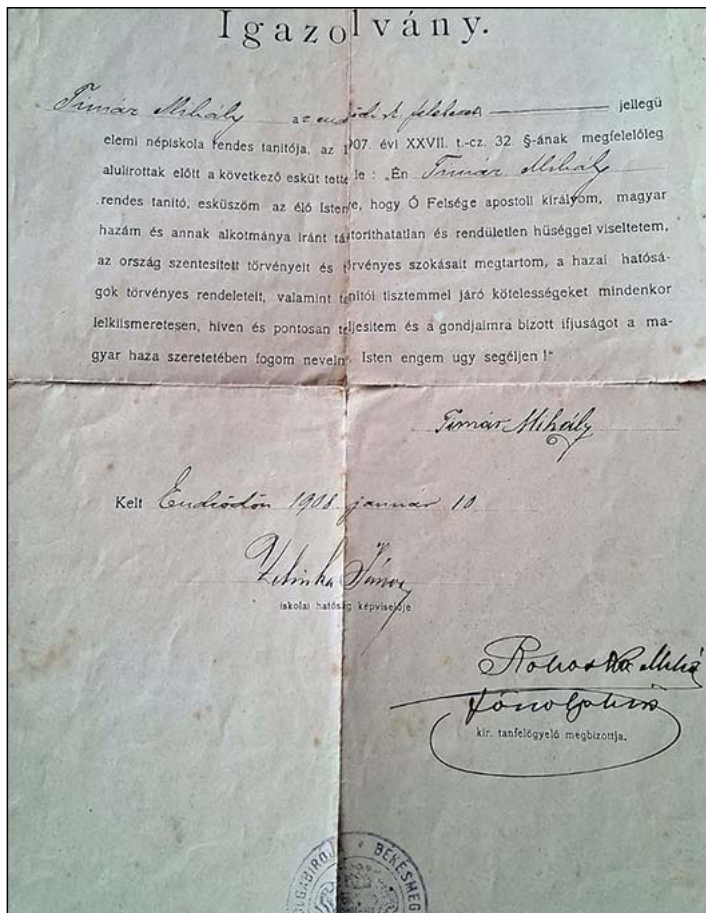 Igazolvány.
Timár Mihály az endrődi r. k. felekezeti jellegü
elemi népiskola rendes tanitója, az 1907. évi XXVII. t.-cz. 32. §-ának megfelelőleg
alulirottak előtt a következő esküt tette le : „Én Timár Mihály
rendes tanitó, esküszöm az élő Istenre, hogy Ő Felsége apostoli királyom, magyar
hazám és annak alkotmánya iránt tántorithatatlan és rendületlen hüséggel viseltetem,
az ország szentesitett törvényeit és törvényes szokásait megtartom, a hazai hatósá-
gok törvényes rendeleteit, valamint tanitói tisztemmel járó kötelességeket mindenkor
lelkiismeretesen, hiven és pontosan teljesitem és a gondjaimra bizott ifjuságot a ma-
gyar haza szeretetében fogom nevelni. Isten engem ugy segéljen !"
Timár Mihály
Kelt Endrődön 1908. január 10
Zelinka János
iskolai hatóság képviselője
kir. tanfelügyelő megbizottja.
BÉKÉSMEG